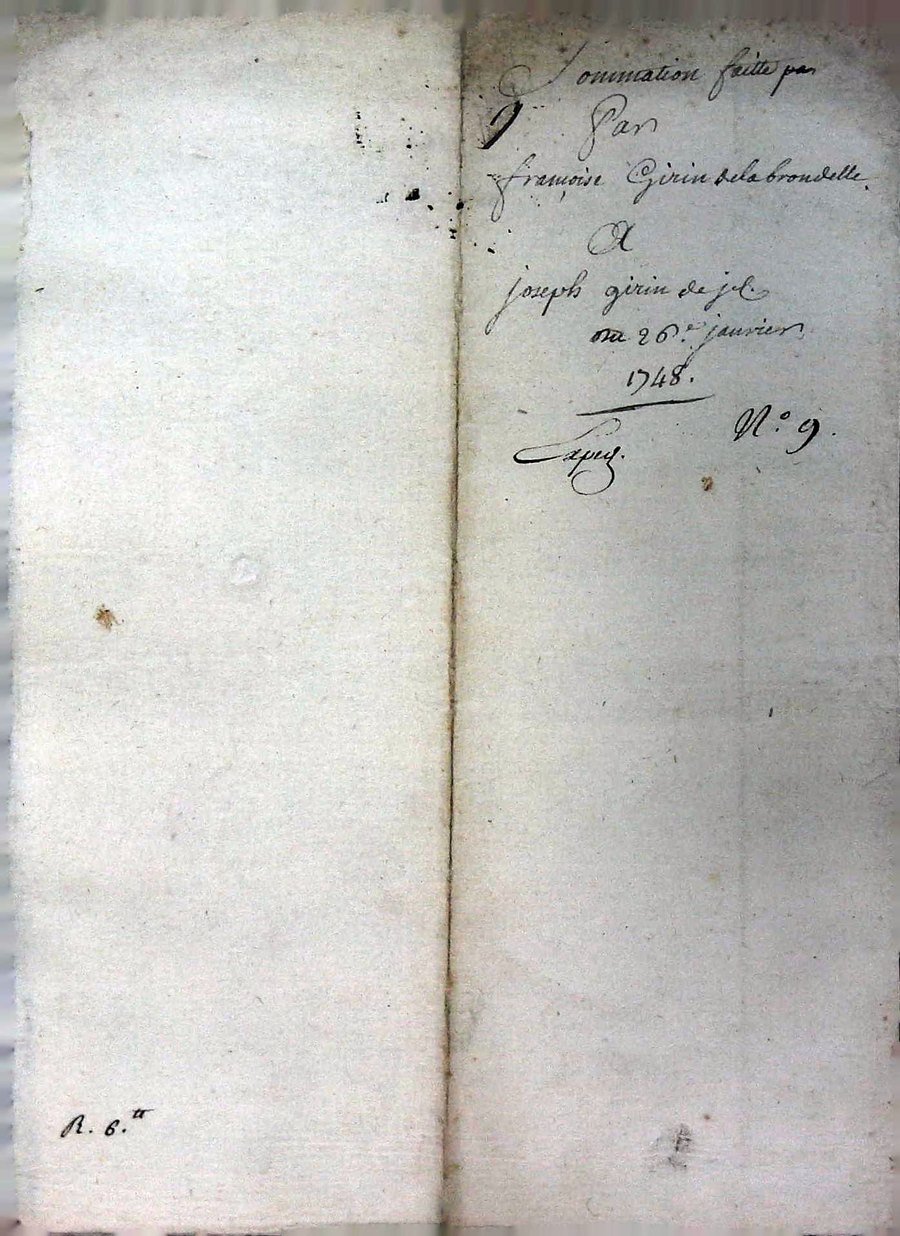 Sommation faitte par
9 Par
françoise Girin dela brondelle
A
joseph girin de
du 26e. janvier
1748.
N.o 9.
R. 6.tt